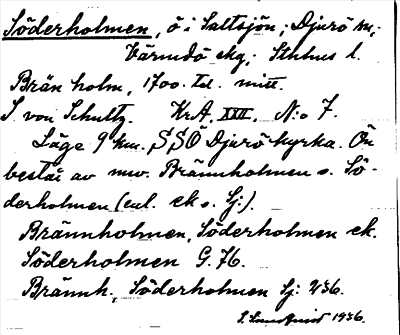 Söderholmen, ö i Saltsjön; Djurö sn;
Värmdö skg; Sthlms l.
Brän holm, 1700-tal. mitt.
S. von Schultz. KrA, XXII, N:o 7.
Läge 9 km. SSÖ Djurö kyrka. Ön
består av nuv. Brännholmen o. Sö-
derholmen (enl. ek o. Sj:).
Brännholmen, Söderholmen ek.
Söderholmen G. 76.
Brännh., Söderholmen Sj: 236.
1936.